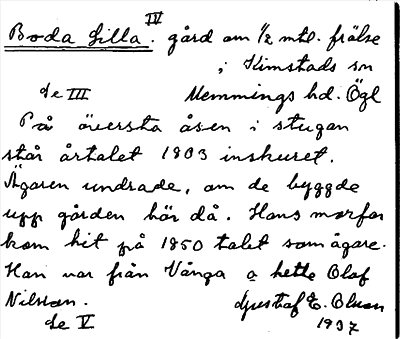 IV
Boda Lilla. gård om 1/2 mtl. frälse
i Kimstads sn
Se III Memmings hd. Ögl
På översta åsen i stugan
står årtalet 1803 inskuret.
Ägaren undrade, om de byggde
upp gården här då. Hans morfar
kom hit på 1850 talet som ägare.
Han var från Vånga o hette Olof
Nilsson. Gustaf E. Olsson
Se V 1937